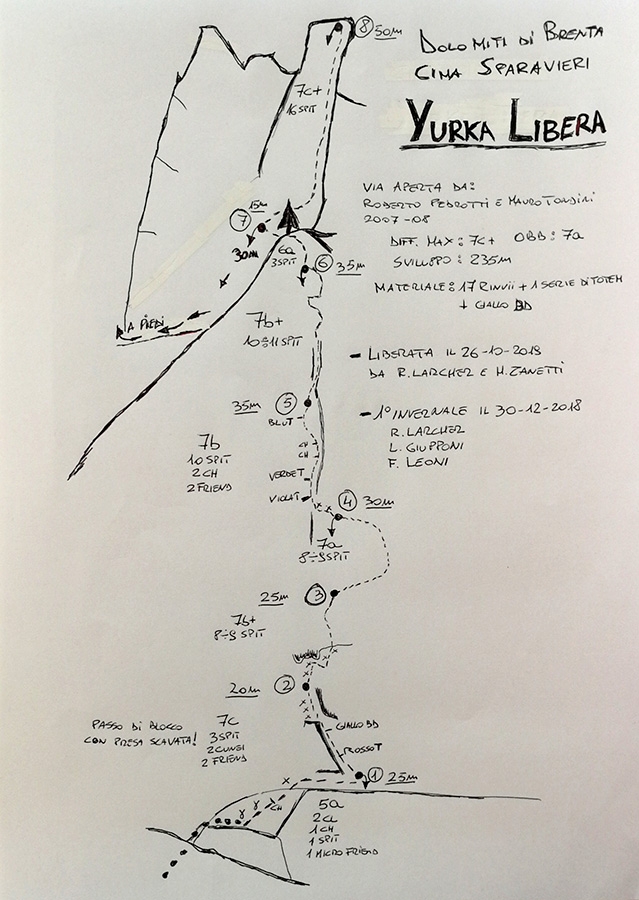 DOLOMITI di BRENTA
CIMA SPARAVIERI
YURKA LIBERA
VIA APERTA DA:
ROBERTO PEDROTTI E MAURO TONDINI
2007-08
DIFF. MAX: 7c+ OBB: 7a
SVILUPPO: 235m
MATERIALE: 17 RINVII + 1 SERIE DI TOTEM
+ GIALLO BD
- LIBERATA IL 26-10-2018
DA R. LARCHER E H. ZANETTI
- 1° INVERNALE IL 30-12-2018
R. LARCHER
L. GIUPPONI
F. LEONI
8 50m
7c+
16 SPIT
15m
7
30m
6a
3 SPIT
6 35m
A PIEDI
7b+
10÷11 SPIT
35m 5
BLU T
CH
CH
7b
10 SPIT
2 CH
2 FRIEND
VERDE T
VIOLA T
4 30m
7a
8÷9 SPIT
25m 3
7b+
8÷9 SPIT
20m 2
PASSO DI BLOCCO
CON PRESA SCAVATA!
7c
3 SPIT
2 CUNEI
2 FRIEND
GIALLO BD
ROSSO T
1 25m
CH
5a
2 CL
1 CH
1 SPIT
1 MICRO FRIEND